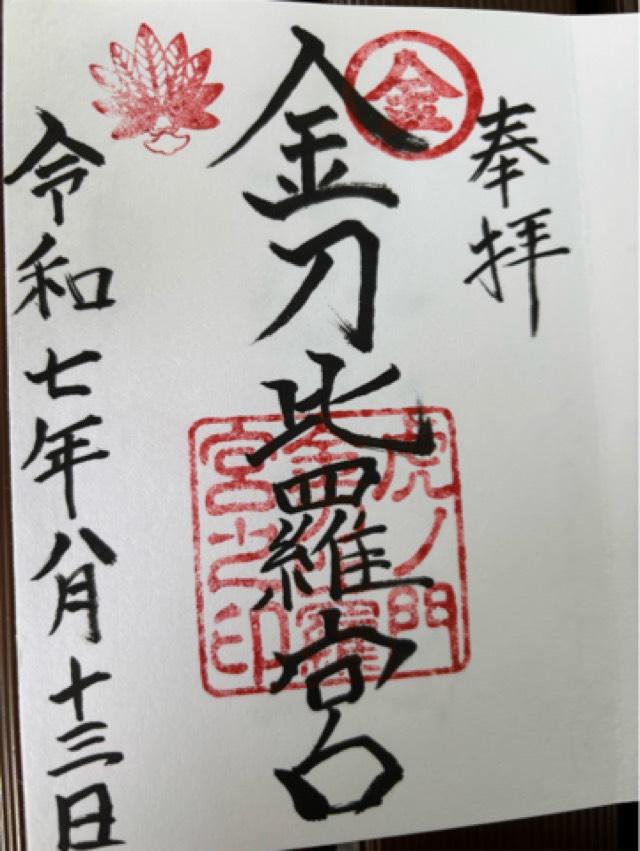 奉拝
金
金刀比羅宮
虎ノ門
金刀比羅
宮之印
令和七年八月十三日